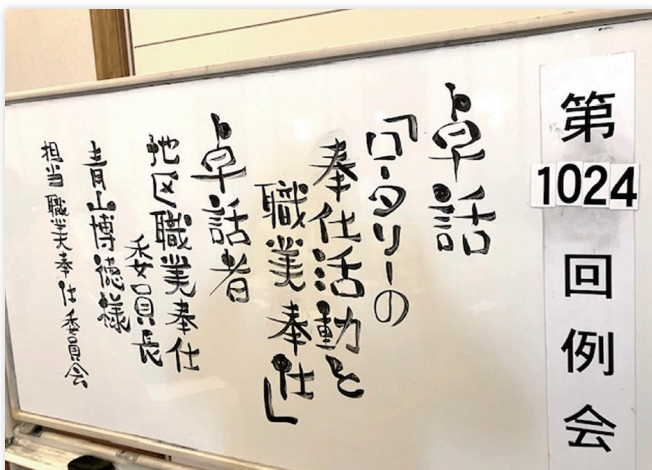 第1024回例会
卓話
「ロータリーの
奉仕活動と
職業奉仕」
卓話者
地区職業奉仕
委員長
青山博徳様
担当職業奉仕委員会